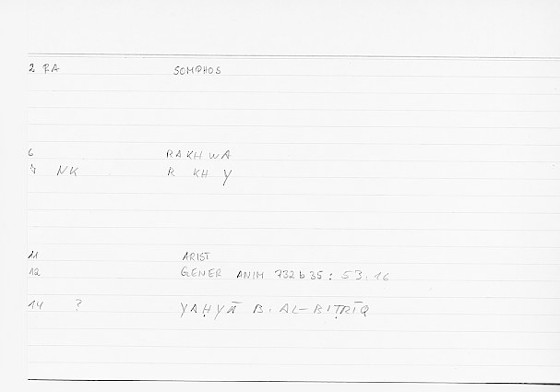 2 RA SOMPHOS
6 RAKHWA
NK R KH Y
11 ARIST
12 GENER ANIM 732 b 35 : 53.16
14 ? YAḤYĀ B. AL-BIṬRĪQ